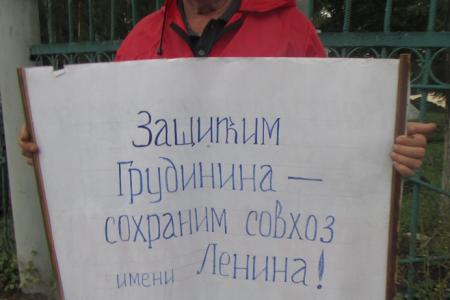 Защитим
Грудинина —
сохраним совхоз
имени Ленина!